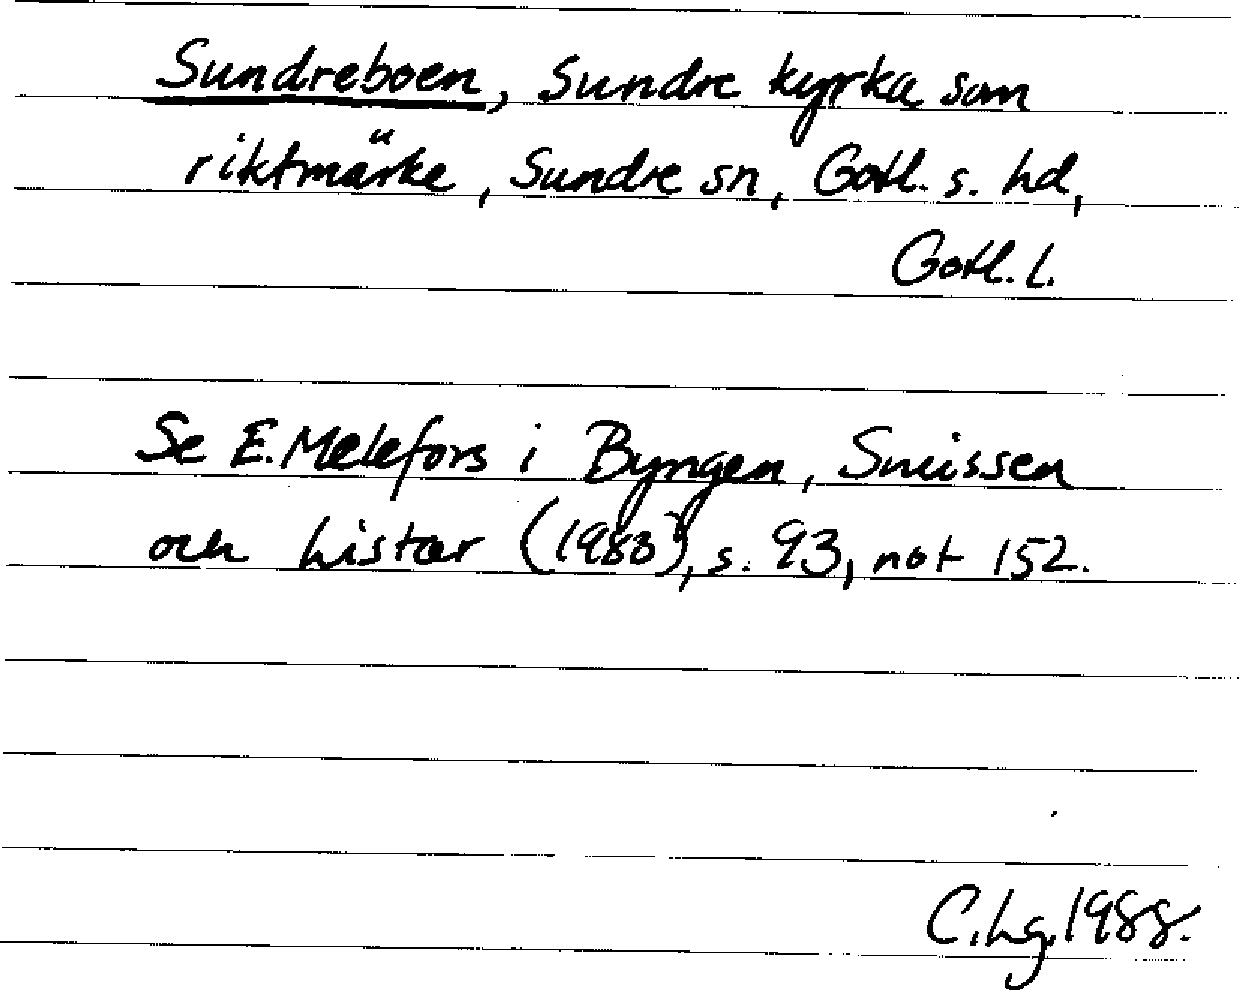 Sundreboen, Sundre kyrka som
riktmärke, Sundre sn, Gotl. s. hd,
Gotl. l.
Se E. Melefors i Byngen, Snuissen
och Listar (1983), s. 93, not 152.
C. Lg. 1988.